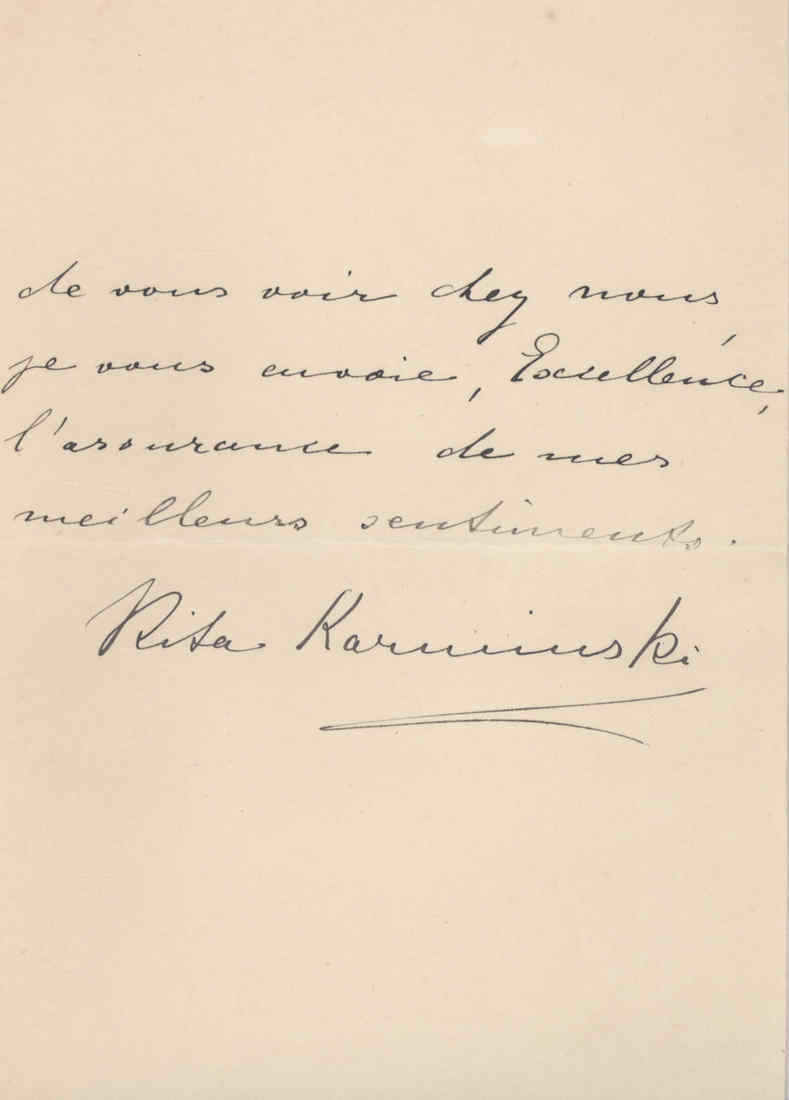 de vous voir chez nous,
je vous envoie, Excellence,
l'assurance de mes
meilleurs sentiments.
Rita Karminski